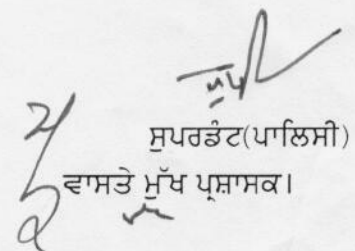 ਸੁਪਰਡੰਟ(ਪਾਲਿਸੀ)
ਵਾਸਤੇ ਮੁੱਖ ਪ੍ਰਸ਼ਾਸਕ।